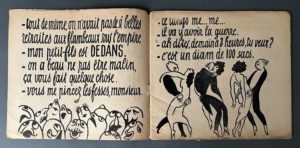 - tout de même on n'avait pas de si belles
retraites aux flambeaux sous l'empire
- mon petit-fils est DEDANS.
- on a beau ne pas être malin,
ça vous fait quelque chose.
- vous me pincez les fesses, monsieur.
- ce swings me... me...
- il va y avoir la guerre.
- ah dites, demain à 3 heures, tu veux?
- c'est un diam de 100 sacs.